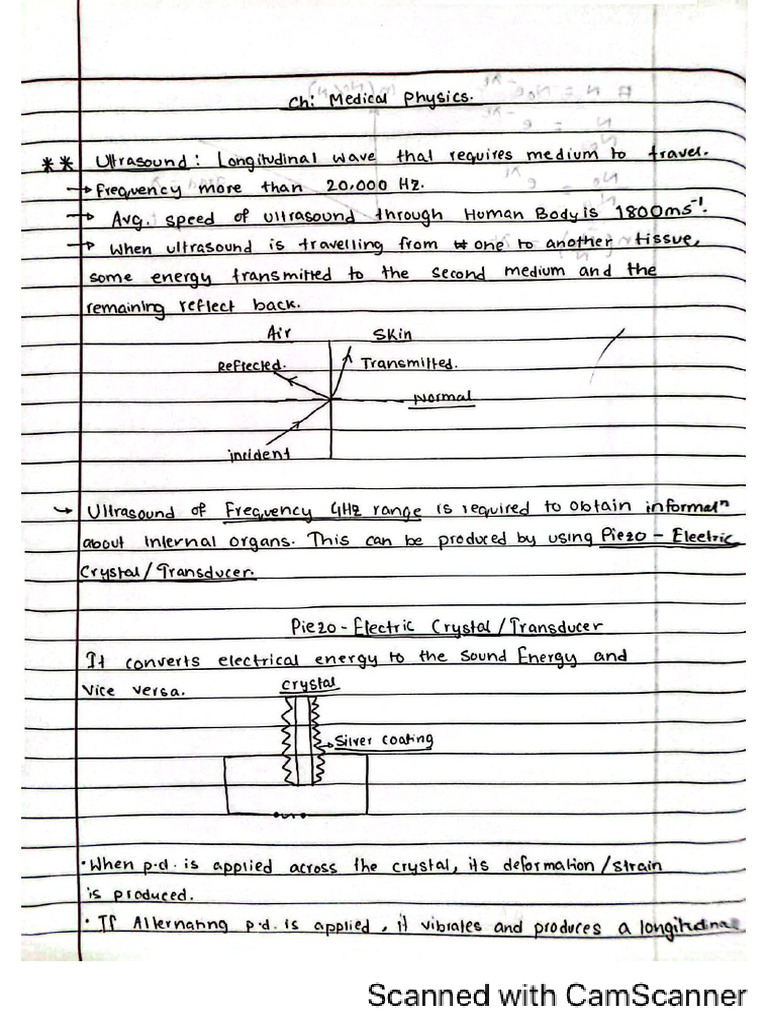 Ch: Medical Physics.
** Ultrasound: Longitudinal wave that requires medium to travel.
→ Frequency more than 20,000 Hz.
→ Avg. speed of ultrasound through Human Body is 1800ms⁻¹.
→ When ultrasound is travelling from one to another tissue,
some energy transmitted to the second medium and the
remaining reflect back.
Air Skin
Reflected. Transmitted.
Normal
incident
→ Ultrasound of Frequency GHz range is required to obtain informaⁿ
about internal organs. This can be produced by using Piezo - Electric
Crystal/Transducer.
Piezo - Electric Crystal/Transducer
It converts electrical energy to the Sound Energy and
Vice versa.
Crystal
→ Silver coating
• When p.d. is applied across the crystal, its deformation/strain
is produced.
• If Alternating p.d. is applied, it vibrates and produces a longitudinal
Scanned with CamScanner